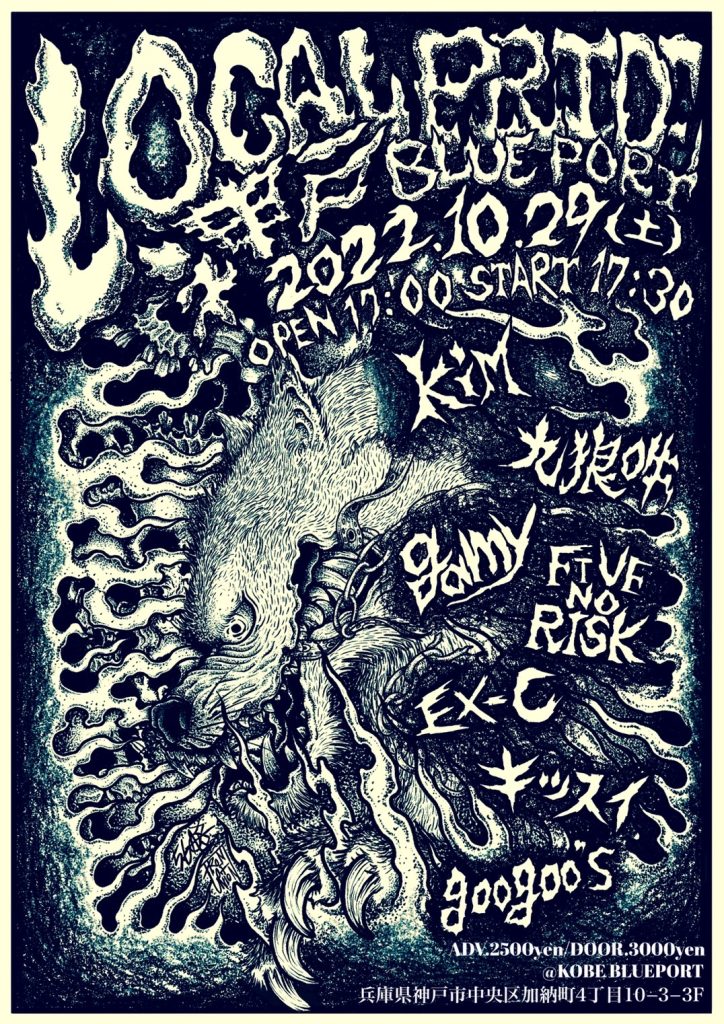 LOCAL PRIDE
神戸 BLUE PORT
2022.10.29(土)
OPEN 17:00 START 17:30
KiM
九狼吠
galmy
FiVE
NO
RISK
EX-C
キッスイ
googoo"s
ADV.2500yen/DOOR.3000yen
@KOBE BLUEPORT
兵庫県神戸市中央区加納町4丁目10-3-3F